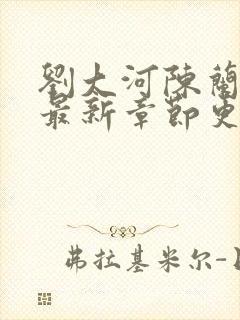 劉大河陳蘭
最新章節史
弗拉基米尔-